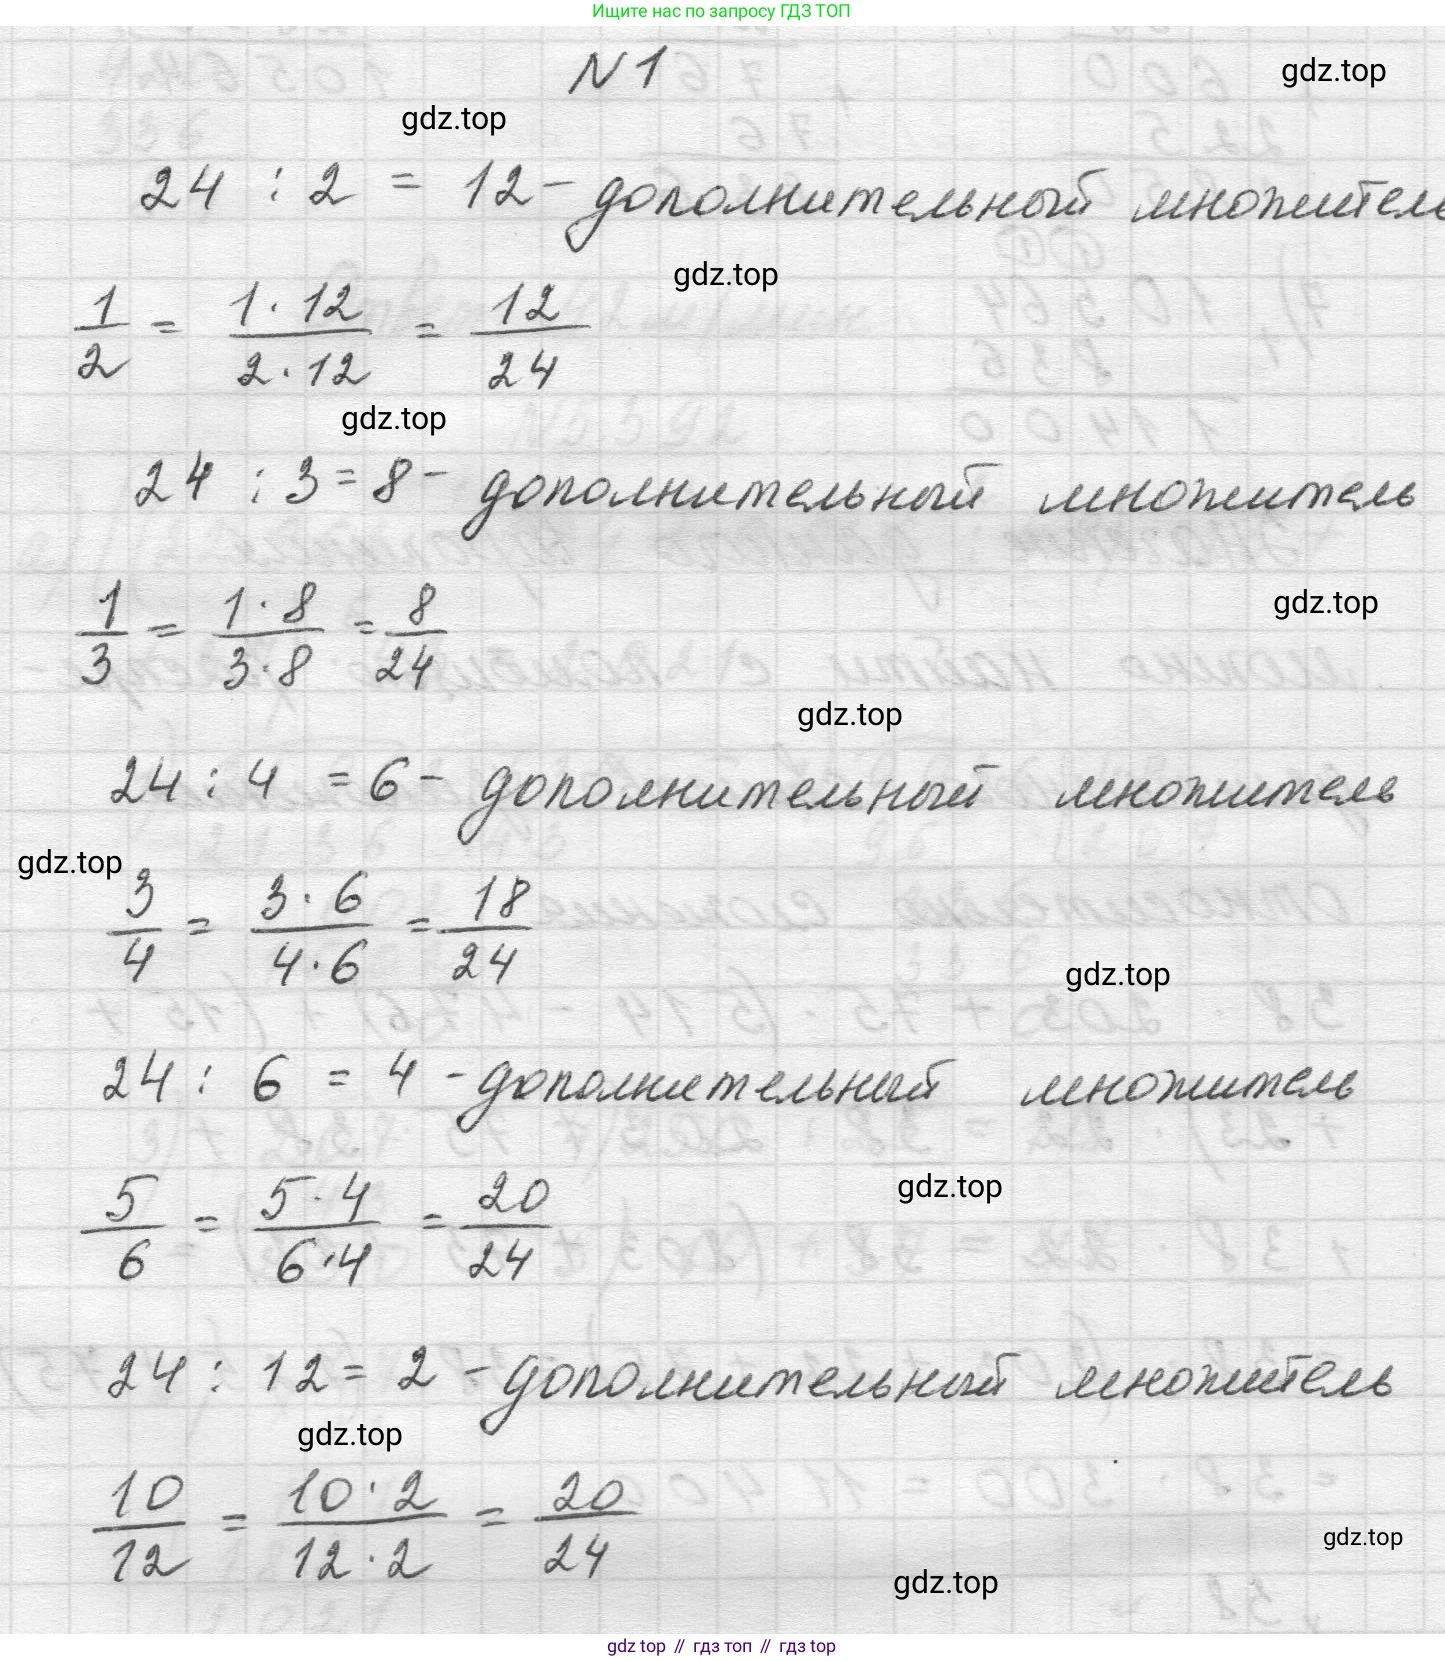 Ищите нас по запросу ГДЗ ТОП
N 1
gdz.top
gdz.top
24 : 2 = 12 - дополнительный множитель
gdz.top
1/2 = 1 · 12 / 2 · 12 = 12/24
gdz.top
24 : 3 = 8 - дополнительный множитель
1/3 = 1 · 8 / 3 · 8 = 8/24
gdz.top
gdz.top
24 : 4 = 6 - дополнительный множитель
gdz.top
3/4 = 3 · 6 / 4 · 6 = 18/24
gdz.top
24 : 6 = 4 - дополнительный множитель
gdz.top
5/6 = 5 · 4 / 6 · 4 = 20/24
24 : 12 = 2 - дополнительный множитель
gdz.top
10/12 = 10 · 2 / 12 · 2 = 20/24
gdz.top
gdz.top
gdz top // гдз топ // gdz top